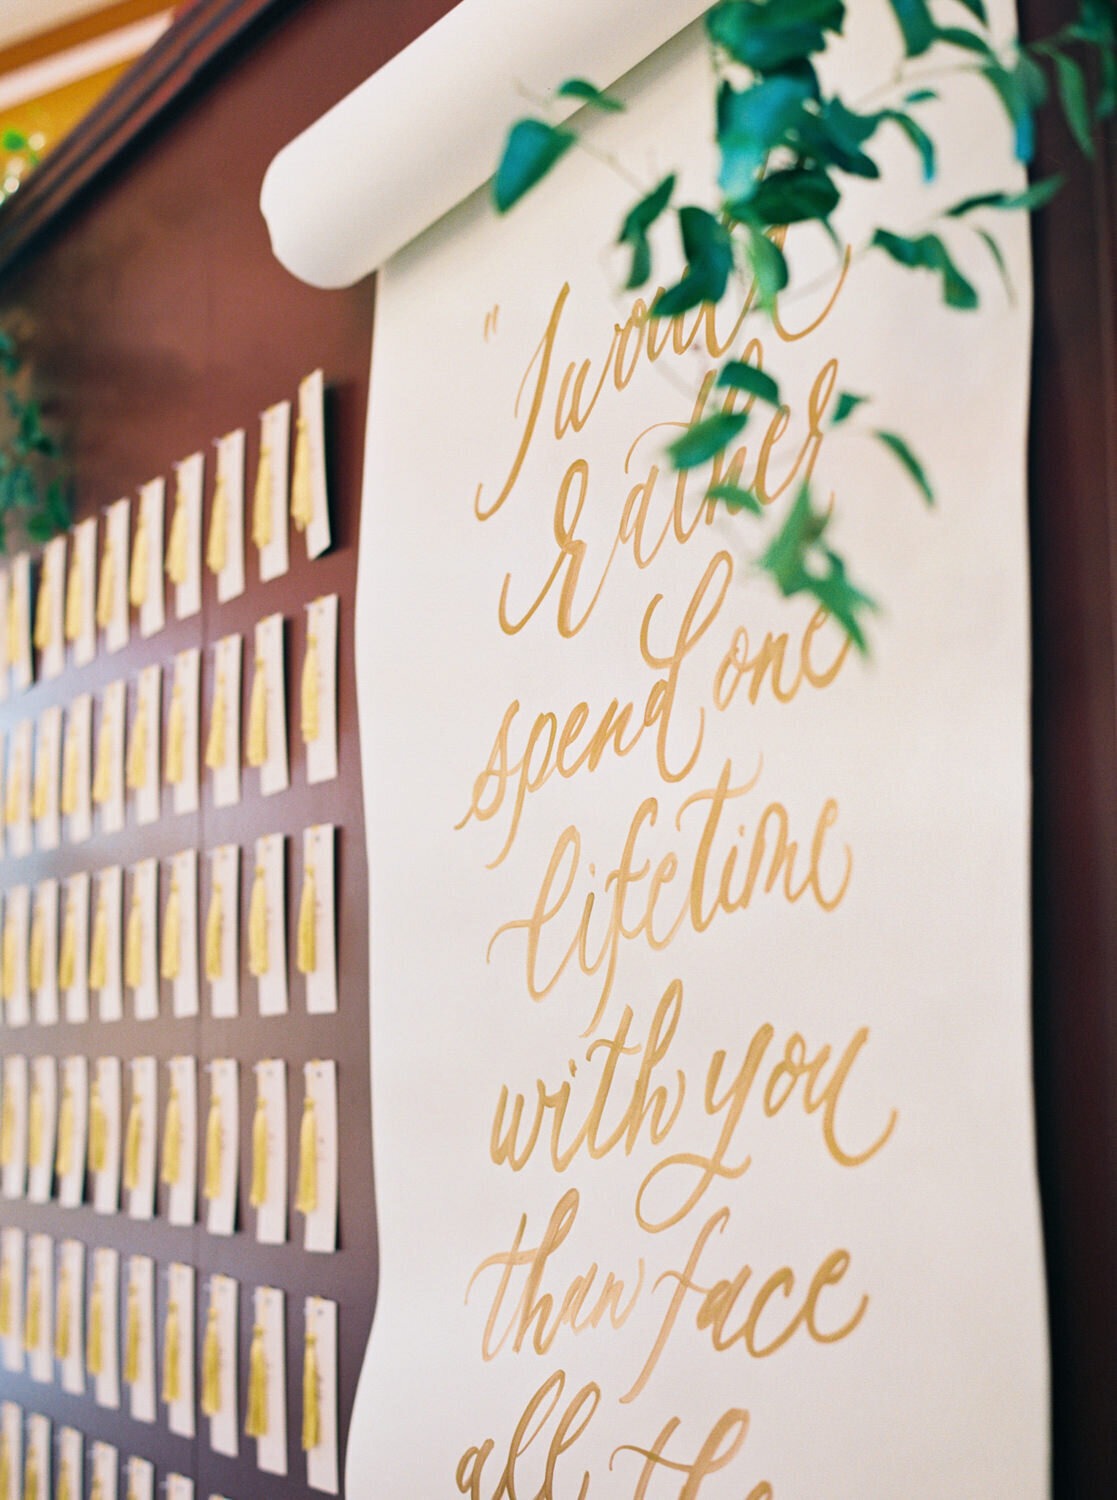 "I would
Rather
spend one
lifetime
with you
than face
all the